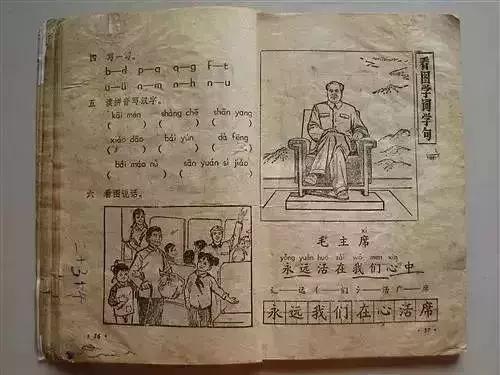 四 写一写。
b—d p—q g F—t
u—ü n—m n—h n—u
五 读拼音写汉字。
kāi mén shàng chē shān yang
( ) ( ) ( )
xiǎo dāo bái yún dà fēng
( ) ( ) ( )
bái máo nǚ sān yuán sì jiǎo
( ) ( )
六 看图说话。
·36·
看图学词学句
xí
毛主席
yǒng yuǎn huó zài wǒ men xīn
永远活在我们心中
永远我们在心活席
·37·